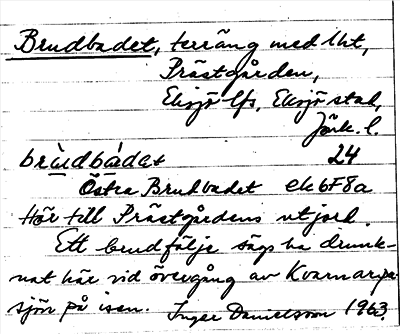 Brudbadet, terräng med lht,
Prästgården,
Eksjö lfs, Eksjö stad,
Jönk. l.
brùdbàdet 24
Östra Brudbadet ek6F8a
Hör till Prästgårdens utjord.
Ett brudfölje sägs ha drunk-
nat här vid övergång av Kvarnarpa-
sjön på isen. Inger Danielsson 1963.